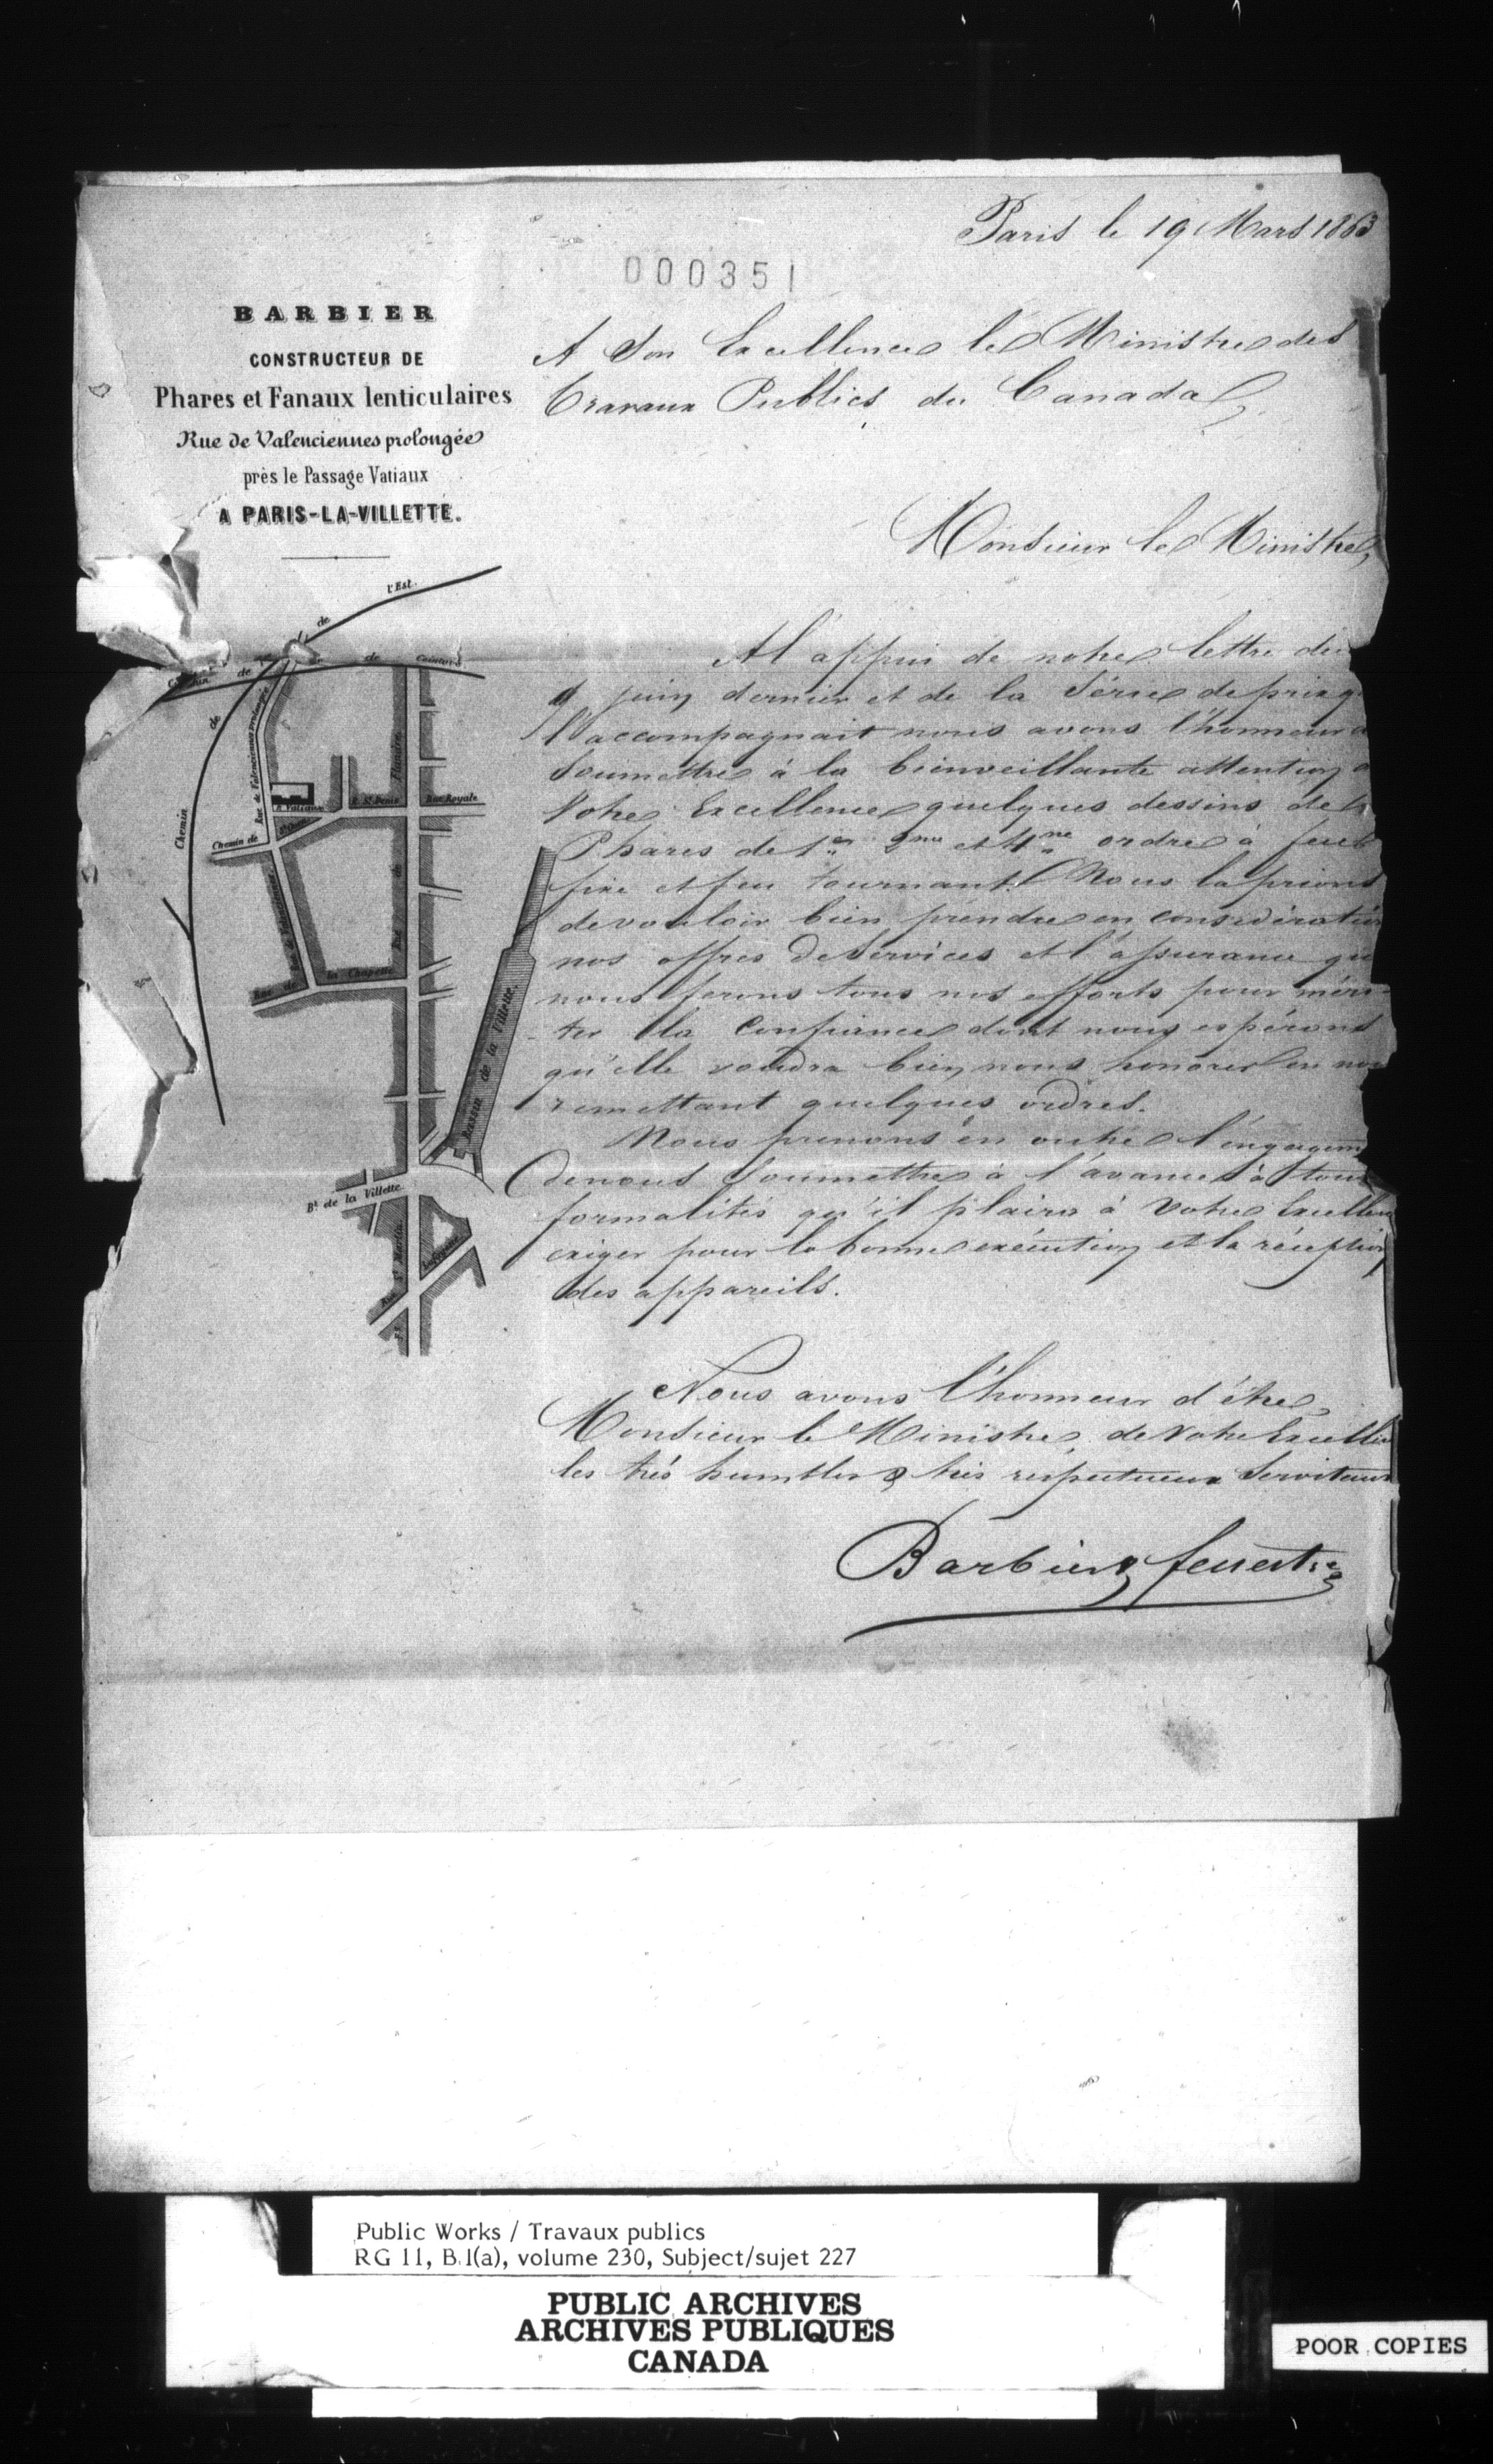 Paris le 19 Mars 1863
000351
BARBIER
CONSTRUCTEUR DE
Phares et Fanaux lenticulaires
Rue de Valenciennes prolongée
près le Passage Vatiaux
A PARIS-LA-VILLETTE.
A Son Excellence le Ministre des
Travaux Publics du Canada,
Monsieur le Ministre,
A l'appui de notre lettre du
juin dernier et de la Série de prix q
l'accompagnait nous avons l'honneur d
Soumettre à la bienveillante attention d
Votre Excellence quelques dessins de
Phares de 1er 2me et 4me ordre à feu
fixe et feu tournant. Nous la prions
de vouloir bien prendre en considération
nos offres de Services et l'assurance qu
nous ferons tous nos efforts pour méri-
-ter la Confiance dont nous espérons
qu'elle voudra bien nous honorer en nou
remettant quelques ordres.
Nous prenons en outre l'engagem
de nous Soumettre à l'avance à tout
formalités qu'il plaira à Votre Excellen
exiger pour la bonne exécution et la réception
des appareils.
Nous avons l'honneur d'être,
Monsieur le Ministre, de Votre Excellen
les très humbles & très respectueux Serviteurs
Barbier & fenestre
l'Est.
de
de
de
Ceinture
de
Chemin
Rue de Valenciennes prolongée
Flandre
P. Vatiaux
R. St Denis
Rue Royale
Chemin de
St Ouen
de
Rue
Rue de Valenciennes
Rue de la Chapelle
Bassin de la Villette
Bt de la Villette
Rue
St Martin
Lafayette
Public Works / Travaux publics
RG 11, B 1(a), volume 230, Subject/sujet 227
PUBLIC ARCHIVES
ARCHIVES PUBLIQUES
CANADA
POOR COPIES